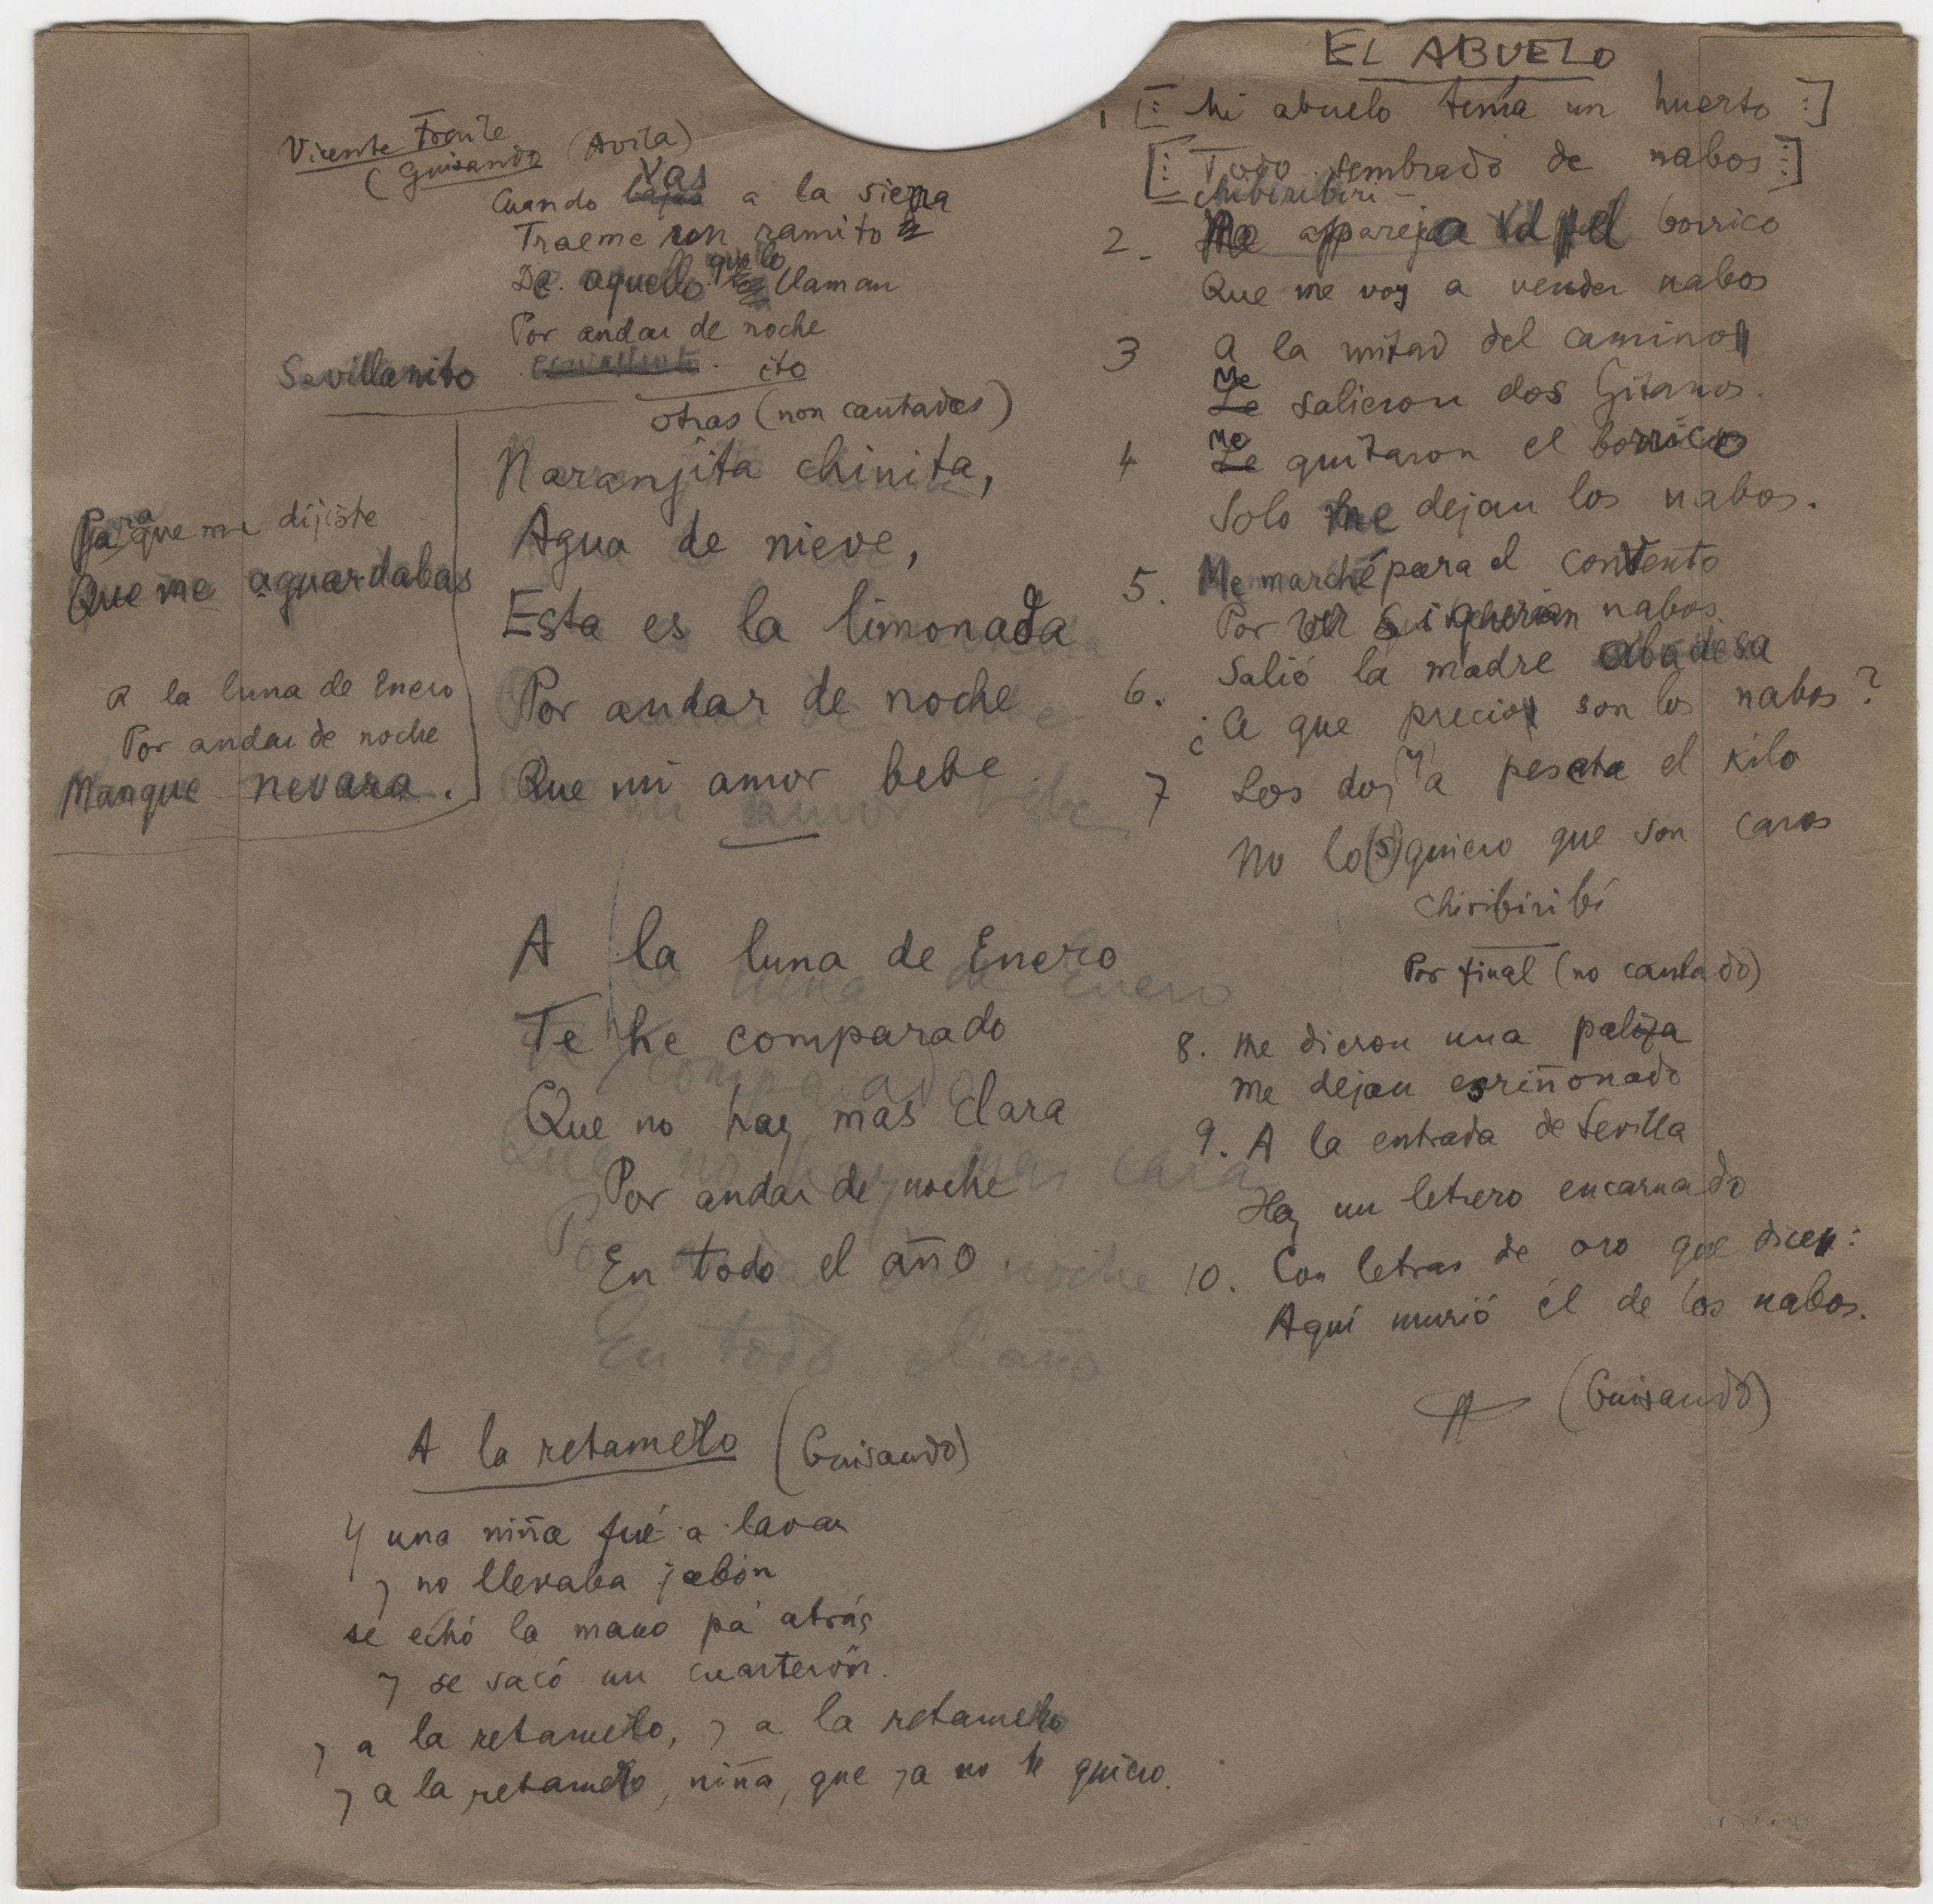 Vicente Fraile
(Guisando (Avila)
Cuando vas a la sierra
Traeme un ramito
De aquello que lo llaman
Por andar de noche
Sevillanito ito
otras (non cantades)
Para que me dijiste
Que me aguardabas
A la luna de Enero
Por andar de noche
Manque nevara.
Naranjita chinita,
Agua de nieve,
Esta es la limonada
Por andar de noche
Que mi amor bebe
A la luna de Enero
Te he comparado
Que no hay mas clara
Por andar de noche
En todo el año.
A la retamelo (Guisando)
Y una niña fué a lavar
y no llevaba jabón
se echó la mano pa' atrás
y se sacó un cuarterón.
y a la retamelo, y a la retamelo
y a la retamelo, niña, que ya no te quiero.
EL ABUELO
1 [: Mi abuelo tenía un huerto :]
[: Todo sembrado de nabos :]
chibiribiri -
2. apareja el borrico
Que me voy a vender nabos
3 A la mitad del camino
Me salieron dos Gitanos.
4 Me quitaron el borrico
Solo me dejan los nabos.
5. Me marché para el convento
Por ver si querian nabos
6. Salió la madre abadesa
¿A que precio son los nabos?
7 Los doy a peseta el kilo
No lo(s) quiero que son caros
chiribiribí
Por final (no cantado)
8. me dieron una paliza
me dejan esriñonado
9. A la entrada de Sevilla
Hay un letrero encarnado
10. Con letras de oro que dicen:
Aquí murió él de los nabos.
(Guisando)